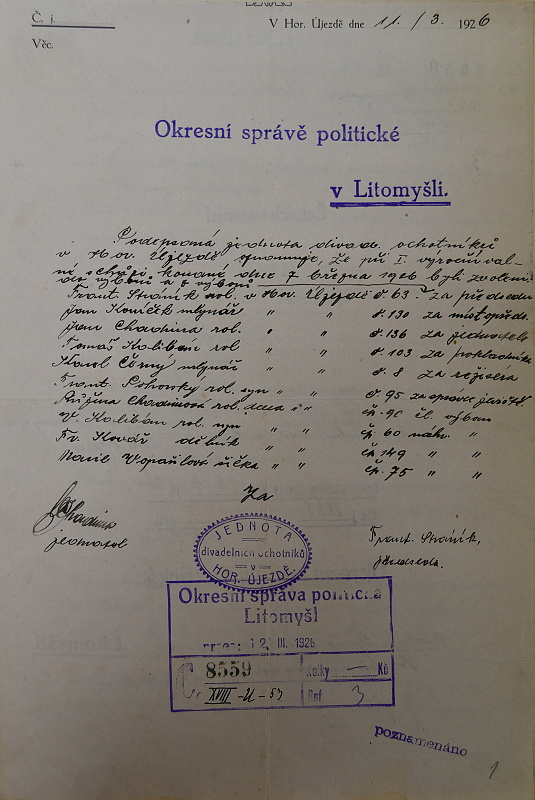 Č. j.
V Hor. Újezdě dne 11. / 3. 1926
Věc.
Okresní správě politické
v Litomyšli.
Podepsaná jednota divad. ochotníků
v Hor. Újezdě oznamuje, že při I. výroční val-
né schůzi, konané dne 7 března 1926 byli zvoleni
do výboru a
Frant. rol. v Hor. Újezdě č. 63. za předsedu
Jan Koníček mlynář " " č. 130 za místopředs.
Jan Chadima rol. " " č. 136 za jednatele
Tomáš Kalibán rol " " č. 103 za pokladníka
Karel Černý mlynář " " č. 8 za režiséra
Frant. rol. syn " " č. 95 za správce
Růžena Chadimová rol. dcera " " čp. 90 čl. výboru
V. Kalibán rol. syn " " čp. 60 náhr. "
Fr. Kovář dělník " " čp 149 " "
Marie šička " " čp. 75 " "
Za
Chadima
jednatel
Frant.
předseda.
JEDNOTA
divadelních ochotníků
v
HOR. ÚJEZDĚ.
Okresní správa politická
Litomyšl
prez: 12. III. 1926
Č. 8559 Kolky — Kč
XVIII -U - 53 3
poznamenáno
1